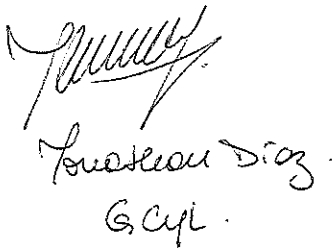 Jonathan Diaz.
GCyL.